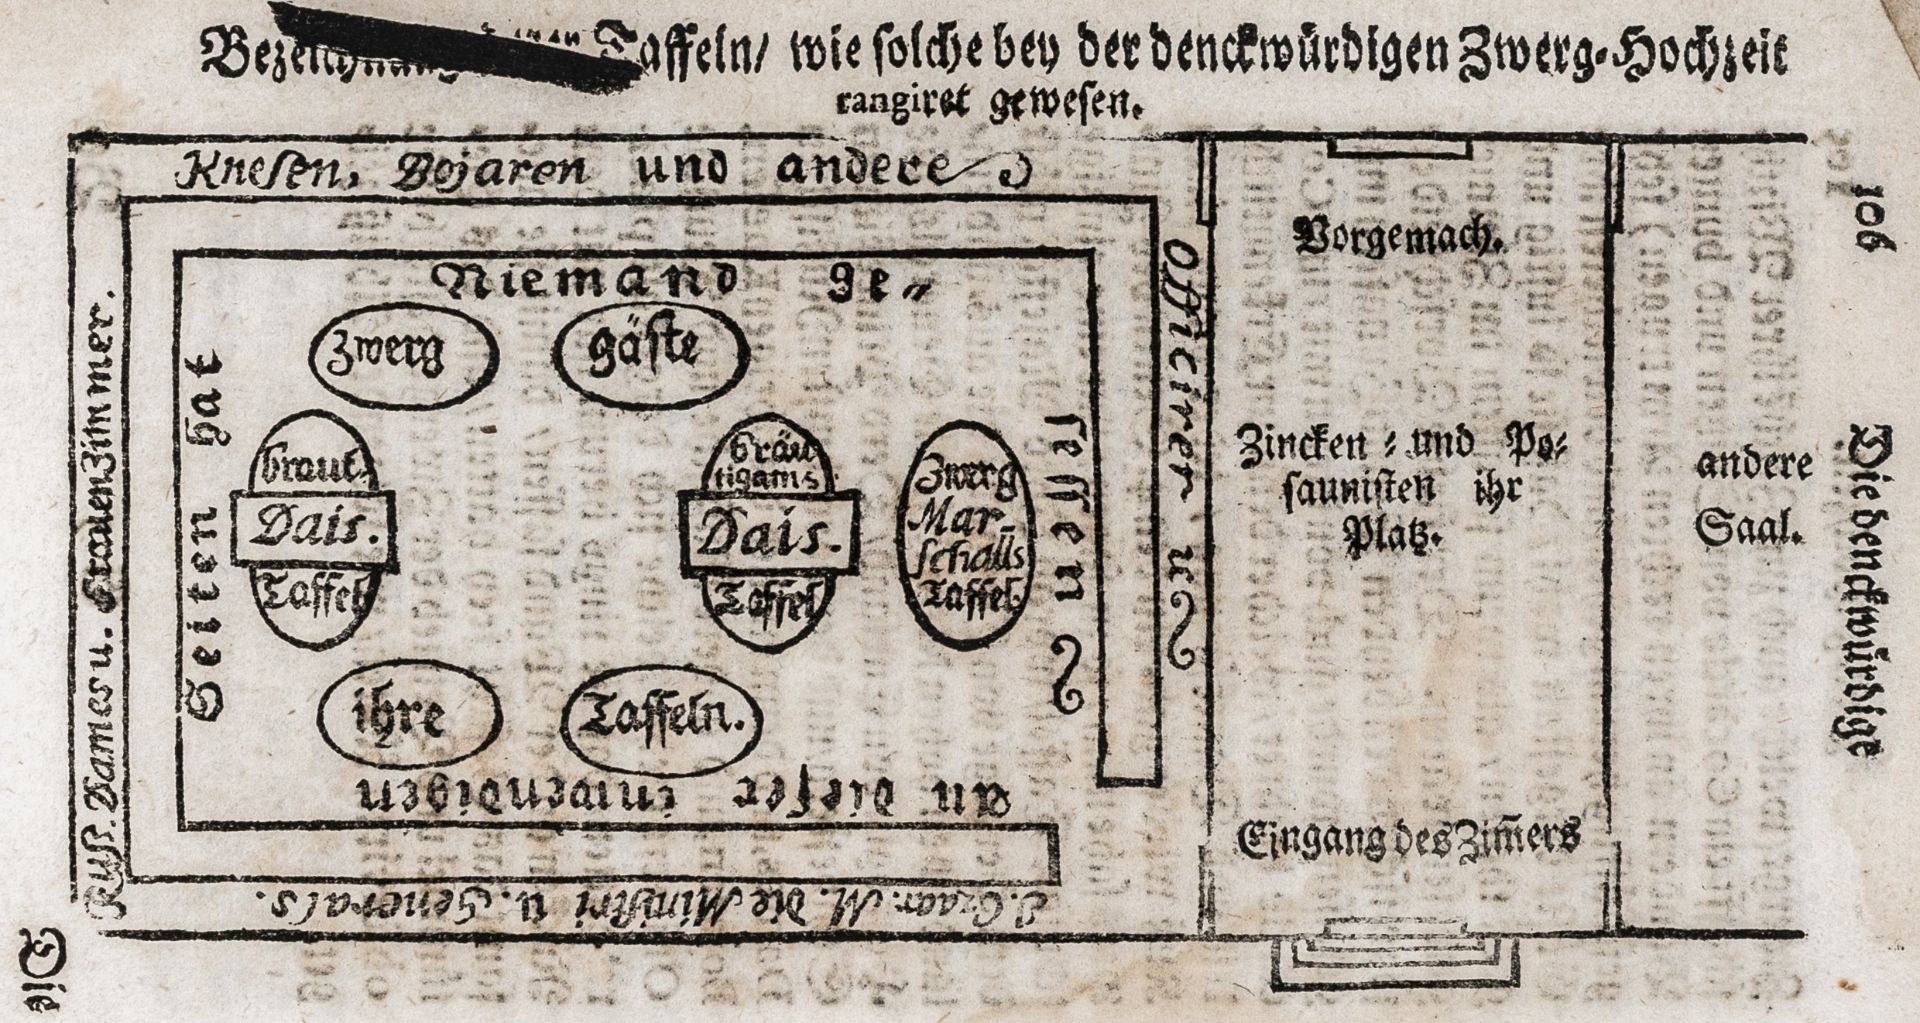 Bezeichnung Taffeln/ wie solche bey der denckwürdigen Zwerg-Hochzeit
rangiret gewesen.
Knesen, Bojaren und andere
Officirer u
Russ. Dames u. Frauenzimmer.
I. Czaar. M. die Ministri u. Generals.
An dieser inwendigen
Seiten hat
Niemand ge-
sessen
Zwerg
gäste
braut
Dais.
Taffel
bräu
tigams
Dais.
Taffel
Zwerg
Mar-
schalls
Taffel
ihre
Taffeln.
Vorgemach.
Zincken- und Po-
saunisten ihr
Platz.
Eingang des Zim̃ers
andere
Saal.
106
Die denckwürdige
Die